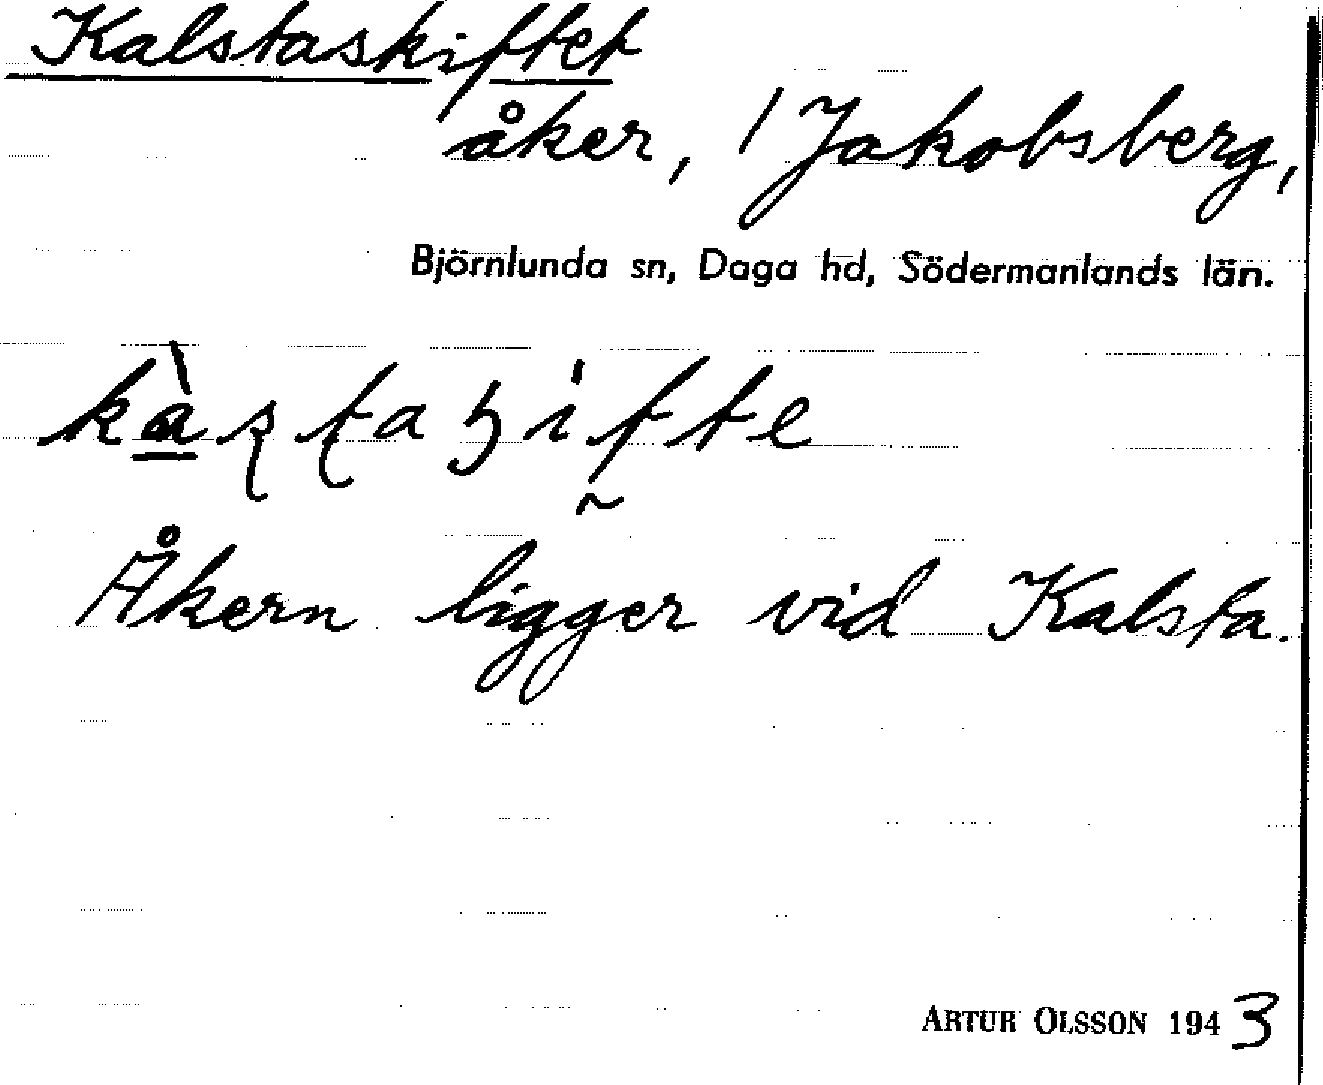 Kalstaskiftet
åker, 1 Jakobsberg,
Björnlunda sn, Daga hd, Södermanlands län.
Åkern ligger vid Kalsta.
ARTUR OLSSON 1943